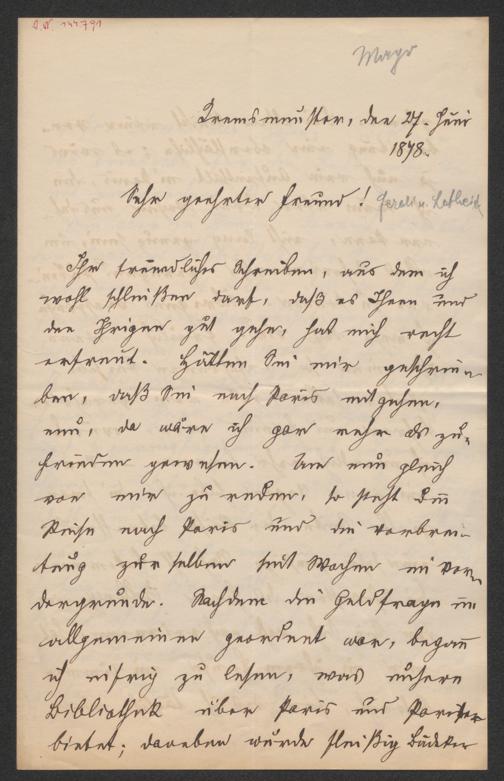 144791
Mayr
Kremsmünster, den 27. Juni
1878.
Sehr geehrter Freund!
Ihr freundliches Schreiben, aus dem ich
wohl schließen darf, daß es Ihnen und
den Ihrigen gut gehe, hat mich recht
erfreut. Hätten Sie mir geschrie-
ben, daß Sie nach Paris mitgehen,
nun, da wäre ich gar mehr als zu-
frieden gewesen. Um nun gleich
von mir zu reden, so steht die
Reise nach Paris und die Vorberei-
tung zur selben seit Wochen im Vor-
dergrunde. Nachdem die Geldfrage im
allgemeinen geordnet war, begann
ich eifrig zu lesen, was unsere
Bibliothek über Paris und Pariser
bietet; daneben wurde fleißig Bädeker